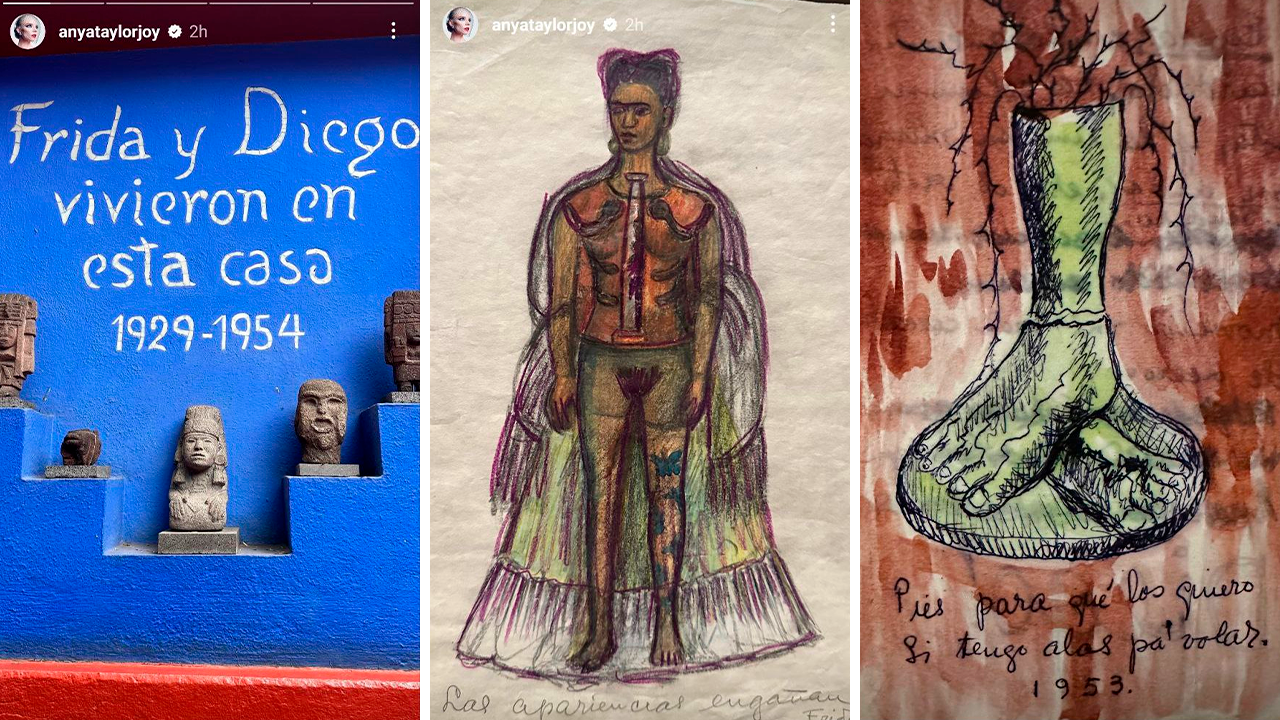 anyataylorjoy 2h
Frida y Diego
vivieron en
esta casa
1929-1954
anyataylorjoy 2h
Las apariencias engañan
Frid
Pies para qué los quiero
Si tengo alas pa' volar.
1953.